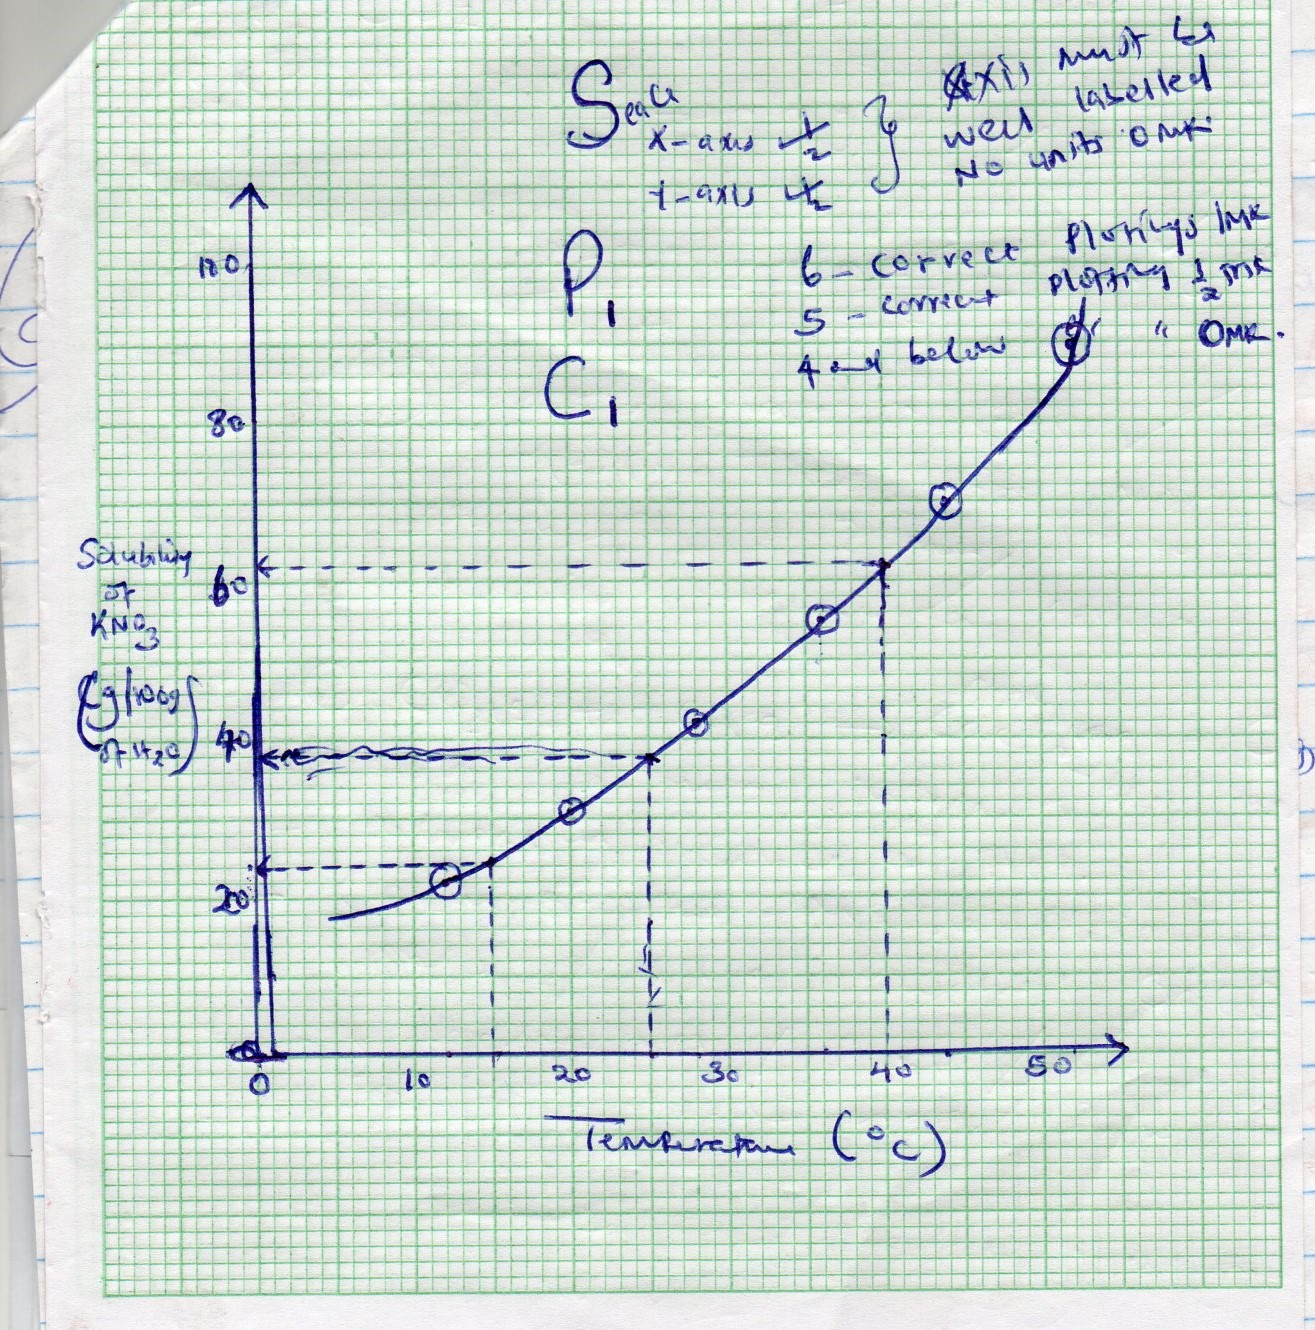 Scale
X-axis ½
Y-axis ½
Axis must be
well labelled
No units 0 MK
P1
6 - correct plottings 1MK
5 - correct plotting ½ MK
4 and below " " 0MK.
C1
100
80
60
40
20
0
Solubility
of
KNO3
(g/100g
of H2O)
0 10 20 30 40 50
Temperature (°C)